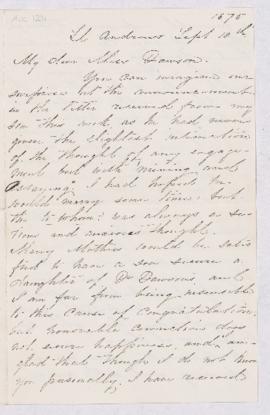 1875
St Andrews Sept 10th
My dear Miss Dawson.
You can imagine our
surprise at the announcement
in the letter received from my
son this week, as he had never
given the slightest intimation
of the thought of any engage-
ment but with "mining and
assaying". I had hoped he
would marry some time; but
the "to whom?" was always a se-
rious and anxious thought.
Many Mothers would be satis
fied to have a son secure a
daughter of Dr Dawsons and
I am far from being insensible
to this cause of congratulation,
but honorable connections does
not secure happiness, and I am
glad that though I do not know
you personally, I have received